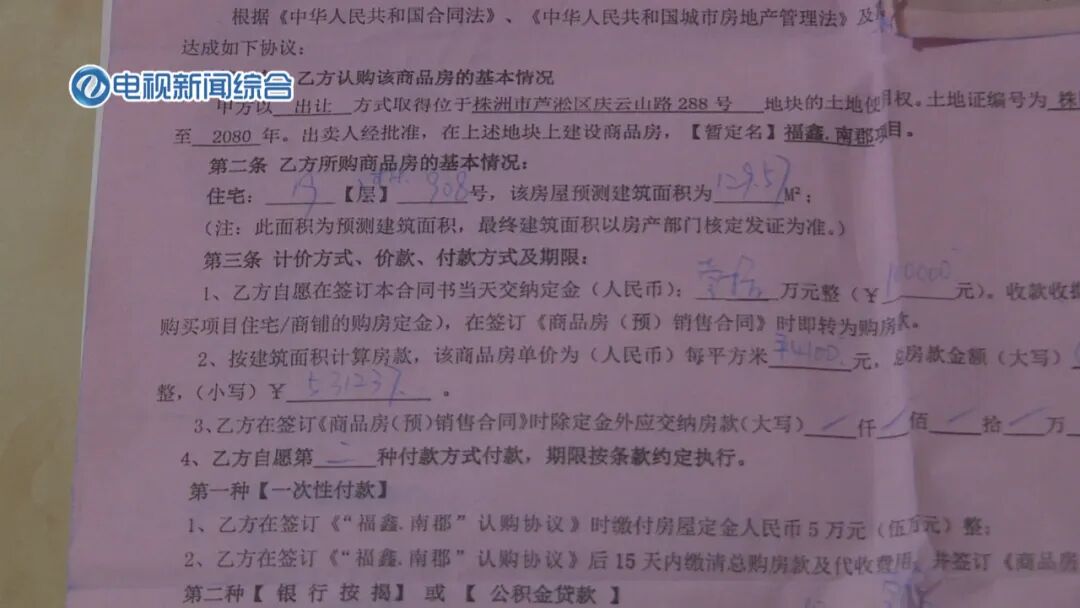 根据《中华人民共和国合同法》、《中华人民共和国城市房地产管理法》及
达成如下协议：
电视新闻综合
乙方认购该商品房的基本情况
甲方以 出让 方式取得位于株洲市芦淞区庆云山路 288 号 地块的土地使用权。土地证编号为 株
至 2080 年。出卖人经批准，在上述地块上建设商品房，【暂定名】福鑫.南郡项目。
第二条 乙方所购商品房的基本情况：
住宅： 【层】 908 号，该房屋预测建筑面积为 129.57 M²；
（注：此面积为预测建筑面积，最终建筑面积以房产部门核定发证为准。）
第三条 计价方式、价款、付款方式及期限：
1、乙方自愿在签订本合同书当天交纳定金（人民币）：壹拾 万元整（￥ 100000 元）。收款收据
购买项目住宅/商铺的购房定金），在签订《商品房（预）销售合同》时即转为购房款。
2、按建筑面积计算房款，该商品房单价为（人民币）每平方米 ￥4100 元，总房款金额（大写）
整，（小写）￥ 531237 。
3、乙方在签订《商品房（预）销售合同》时除定金外应交纳房款（大写） / 仟 / 佰 / 拾 / 万
4、乙方自愿第 二 种付款方式付款，期限按条款约定执行。
第一种【一次性付款】
1、乙方在签订《“福鑫.南郡”认购协议》时缴付房屋定金人民币 5 万元（伍万元）整；
2、乙方在签订《“福鑫.南郡”认购协议》后 15 天内缴清总购房款及代收费用，并签订《商品房
第二种【 银 行 按 揭 】 或 【 公积金贷款 】